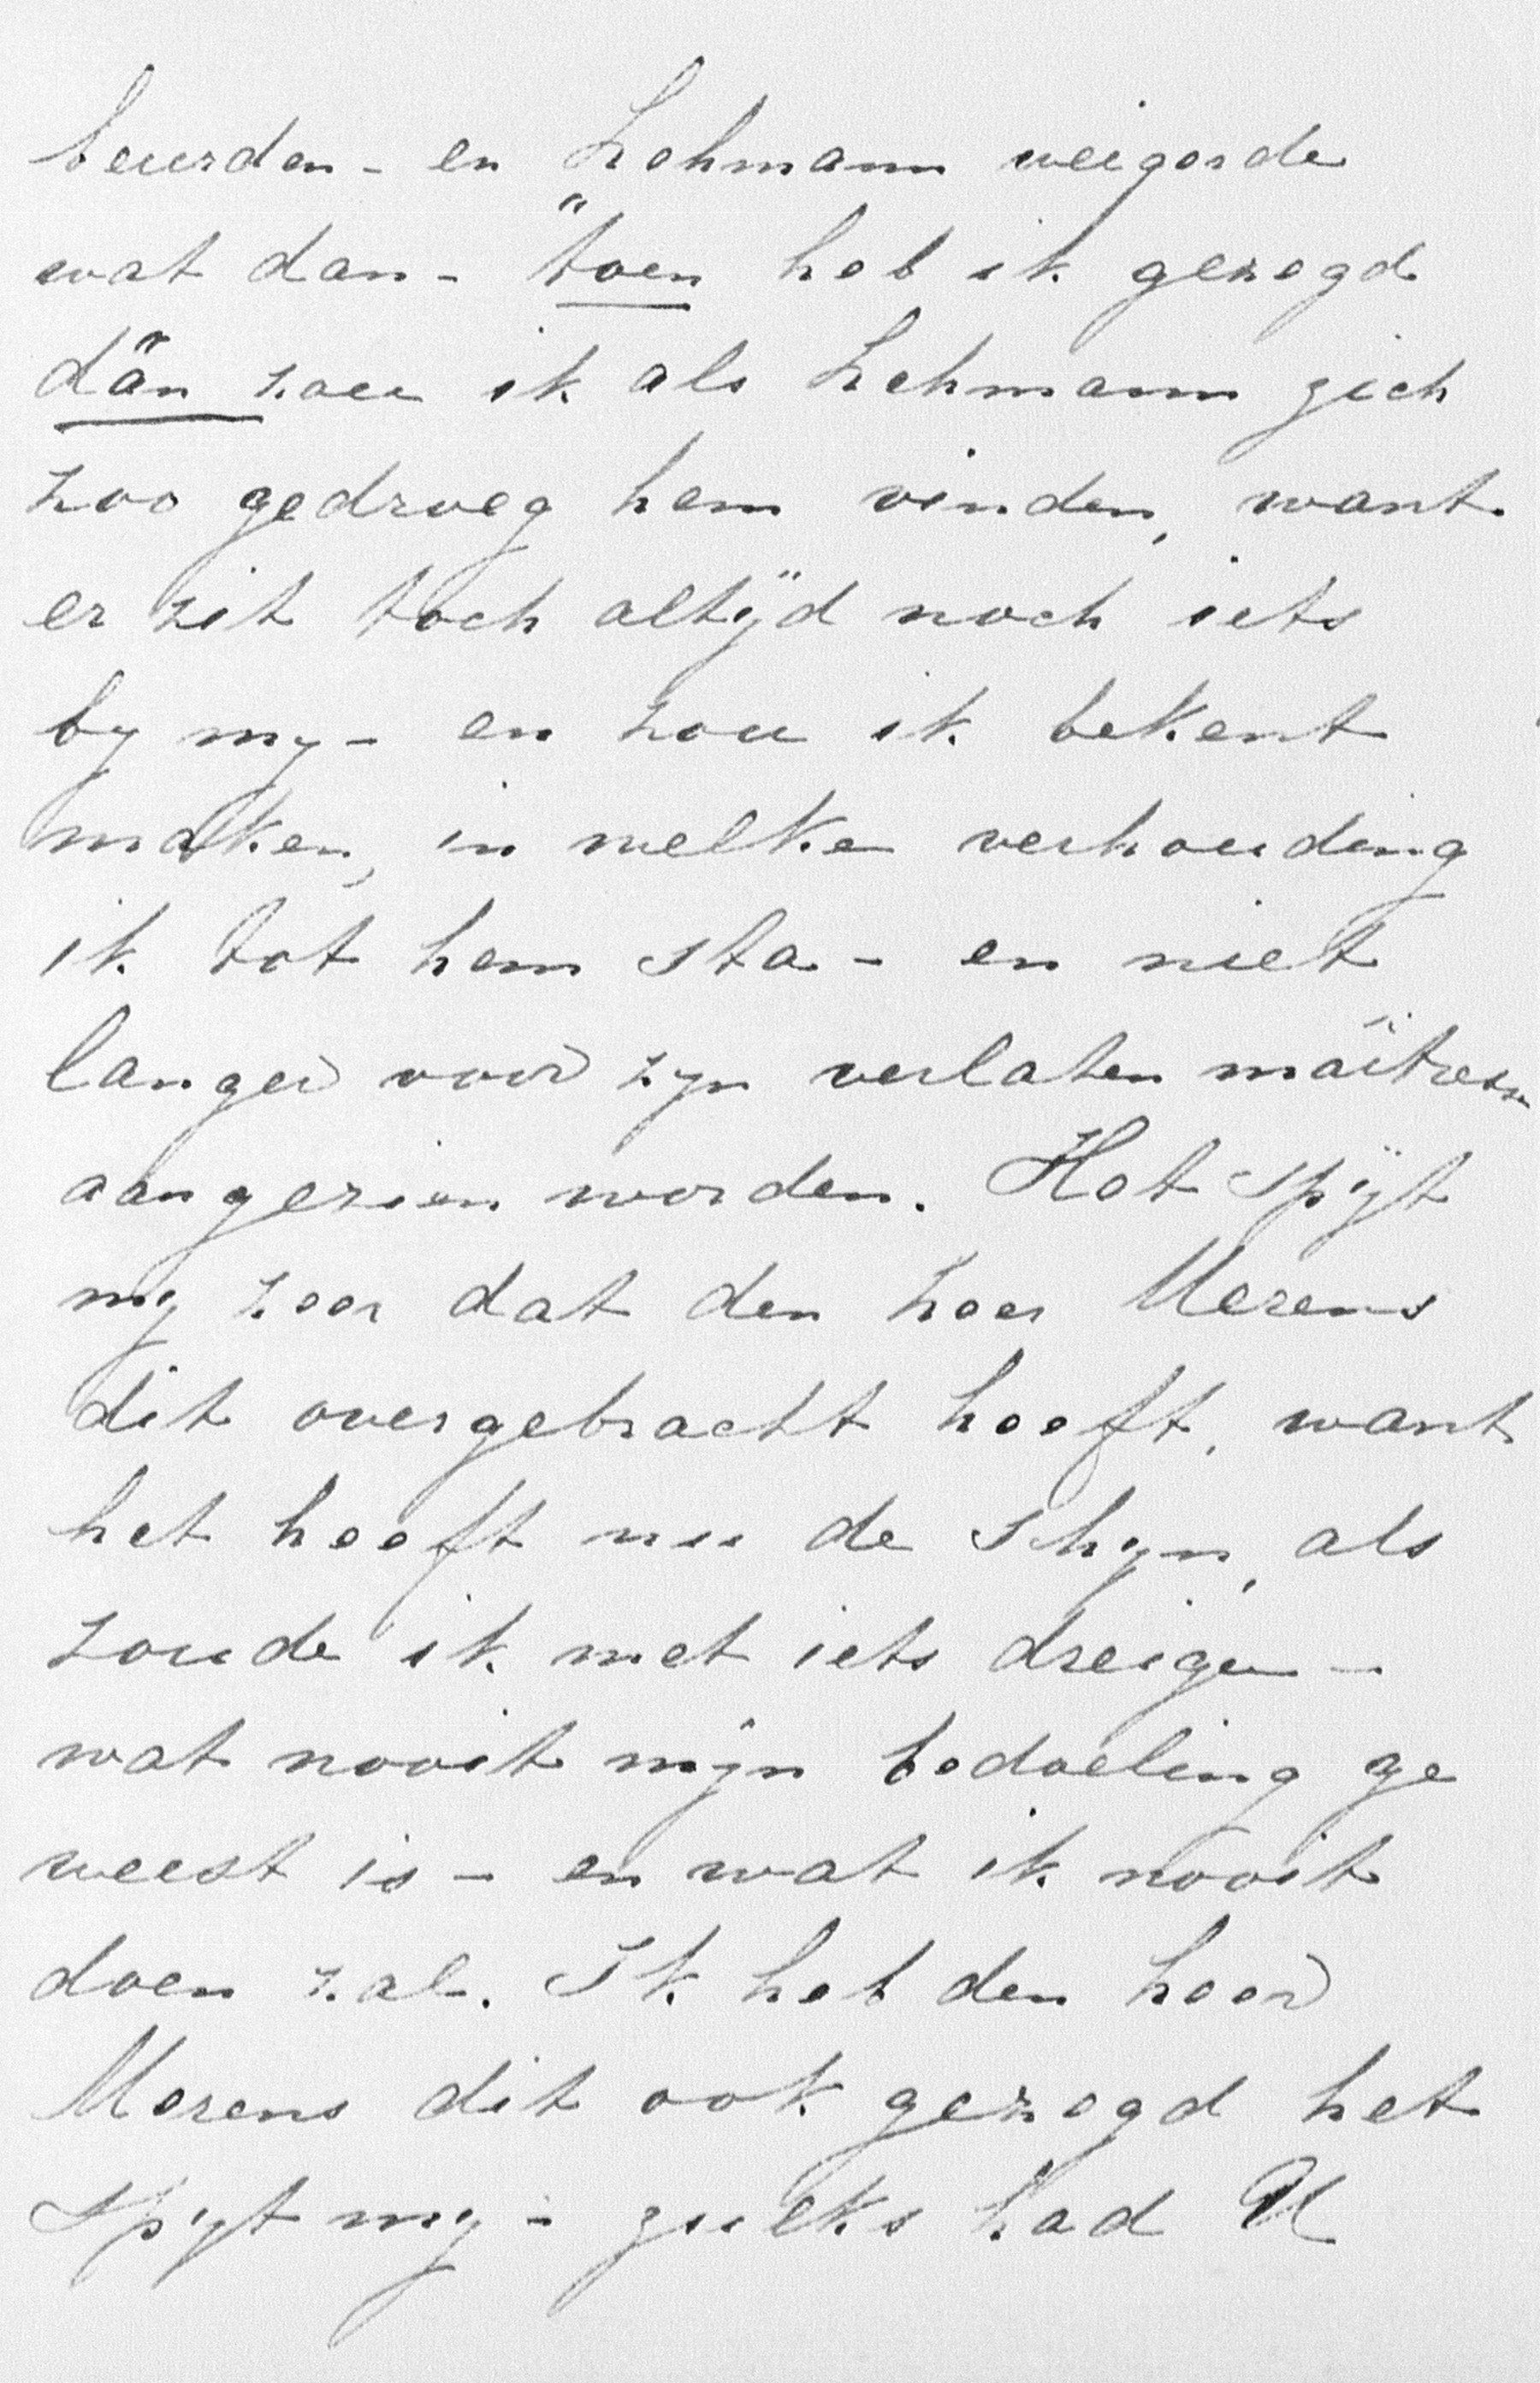 beurden - en Lohmann weigerde
wat dan - "toen heb ik gezegd
dän zou ik als Lohmann zich
zoo gedroeg hem vinden, want
er zit toch altijd noch iets
by my - en zou ik bekent
maken, in welke verhouding
ik tot hem sta - en niet
langer voor zyn verlaten maîtresse
aangezien worden. Het spijt
my zeer dat den heer Merens
dit overgebracht heeft, want
het heeft nu de schyn, als
zoude ik met iets dreigen -
wat nooit mijn bedoeling ge
weest is - en wat ik nooit
doen zal. Ik heb den heer
Merens dit ook gezegd het
spyt my - zulks had U